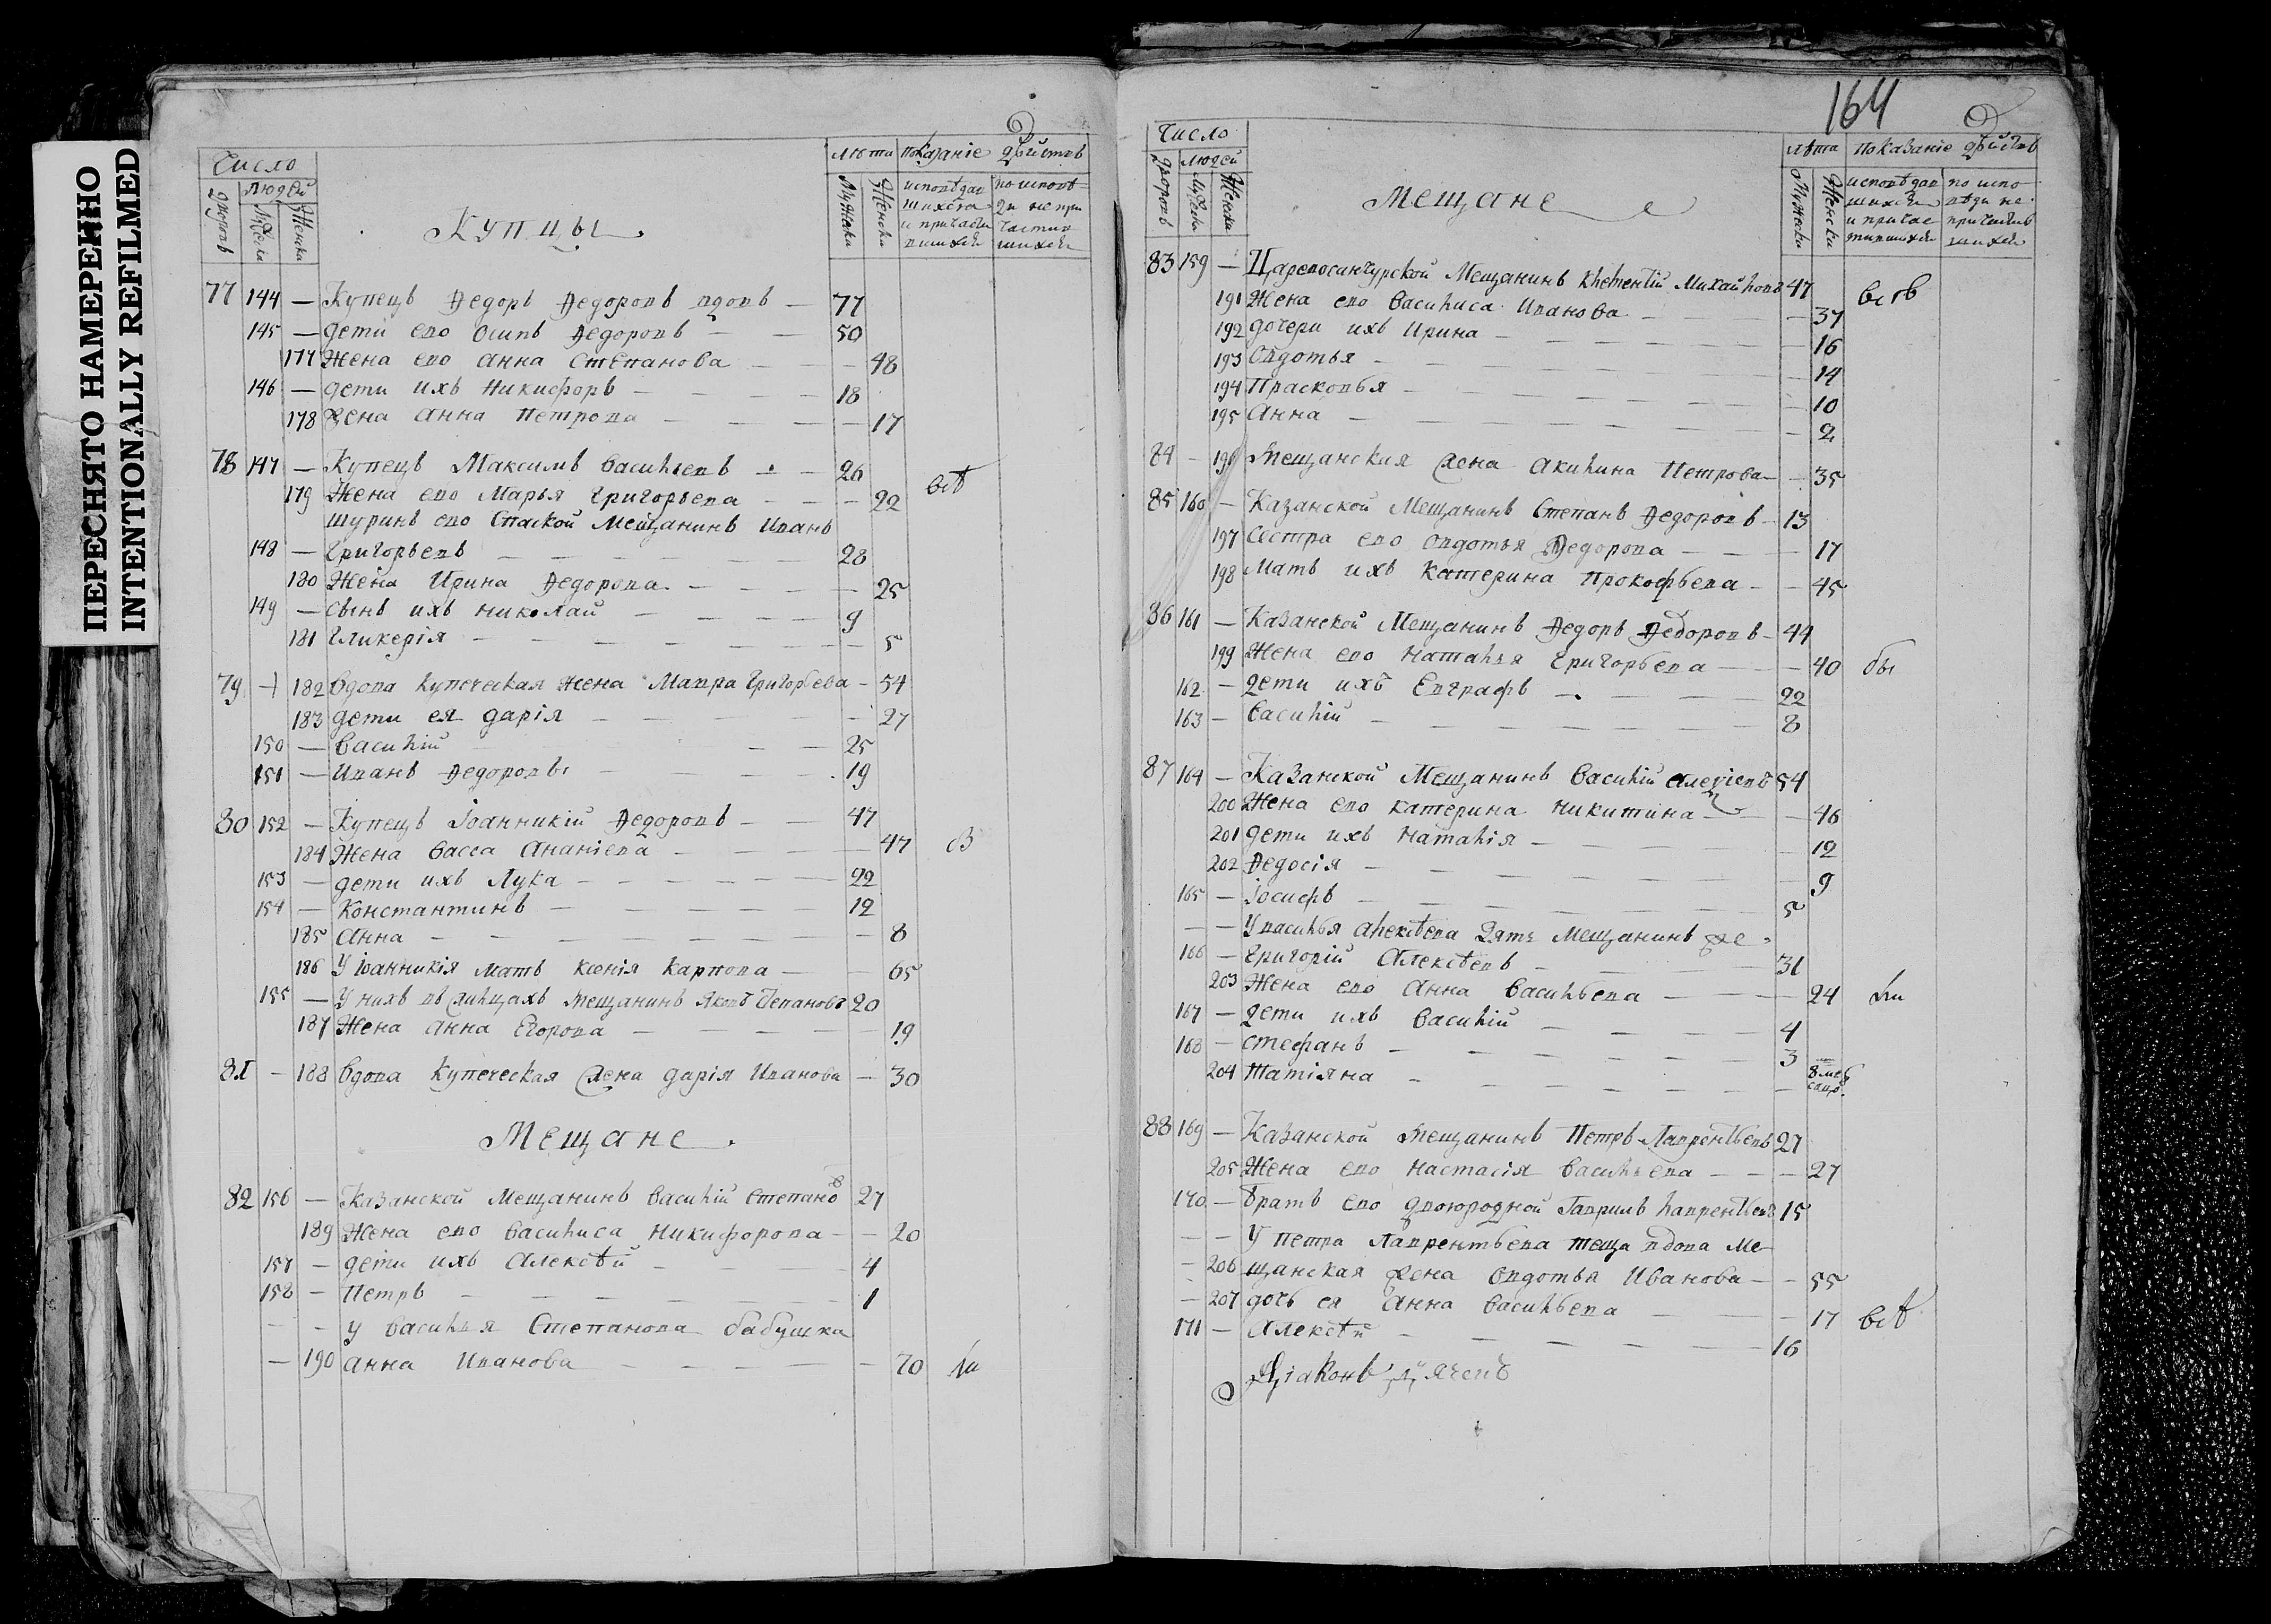 ПЕРЕСНЯТО НАМЕРЕННО
INTENTIONALLY REFILMED
Число
дворовъ
людей
Мужеска
Женска
Купцы.
лѣта
Мужеска
Женска
показаніе действъ
исповѣдав
шихся
и причасти
вшихся
по исповѣ
ди не при
частив
шихся
77 144 — Купецъ Ѳедоръ Ѳедоровъ вдовъ — 77
145 — дети ево Осипъ Ѳедоровъ — — 50
177 Жена ево Анна Степанова — — — 48
146 — дети ихъ Никифоръ — — — — 18
178 Жена Анна Петрова — — — — 17
78 147 — Купецъ Максимъ Васильевъ — — 26
179 Жена ево Марья Григорьева — — — 22 всѣ
шуринъ ево Спаской Мещанинъ Иванъ
148 — Григорьевъ — — — — — 28
180 Жена Ирина Ѳедорова — — — — 25
149 — сынъ ихъ Николай — — — — 9
181 Гликерія — — — — — — — 5
79 — 182 Вдова купеческая жена Мавра Григорьева — 54
183 дети ея Дарія — — — — — 27
150 — Василій — — — 25
151 — Иванъ Ѳедоровы — — — 19
80 152 — Купецъ Іоанникій Ѳедоровъ — — 47
184 Жена Васса Ананіева — — — — 47
153 — дети ихъ Лука — — — — — 22
154 — Константинъ — — — — — 12
185 Анна — — — — — — — 8
186 У Іоанникія мать Ксенія Карпова — — 65
155 — У нихъ въ жильцахъ Мещанинъ Яковъ Степановъ 20
187 Жена Анна Егорова — — — — — 19
81 — 188 Вдова Купеческая жена Дарія Иванова — 30
Мещане.
82 156 — Казанской Мещанинъ Василій Степановъ 27
189 Жена ево Василиса Никифорова — — 20
157 — дети ихъ Алексѣй — — — 4
158 — Петръ — — — — — — 1
— — У Василья Степанова бабушка
— 190 Анна Иванова — — — — — 70
164
Число
дворовъ
людей
Мужеска
Женска
Мещане
лѣта
Мужеска
Женска
показаніе действъ
исповѣдав
шихся
и причас
тившихся
по испо
вѣди не
причастив
шихся
83 159 — Царевосанчурской Мещанинъ Климентій Михайловъ 47
191 Жена ево Василиса Иванова — — — 37 всѣ
192 дочери ихъ Ирина — — — — — 16
193 Овдотья — — — — — — 14
194 Прасковья — — — — — — 10
195 Анна — — — — — — 2
84 — 196 Мещанская жена Акилина Петрова — — 35
85 160 — Казанской Мещанинъ Степанъ Ѳедоровъ — 13
197 Сестра ево Овдотья Ѳедорова — — — 17
198 Мать ихъ Катерина Прокофьева — — 45
86 161 — Казанской Мещанинъ Ѳедоръ Ѳедоровъ — 44
199 Жена ево Наталья Григорьева — — 40
162 — дети ихъ Евграфъ — — — — 22
163 — Василій — — — — — — 8
87 164 — Казанской Мещанинъ Василій 54
200 Жена ево Катерина Никитина — — 46
201 дети ихъ Наталія — — — — — 12
202 Ѳедосія — — — — — — — 9
165 — Іосифъ — — — — — — 5
— — У Василья Алексѣева зять Мещанинъ же
166 — Григорій Алексѣевъ — — — — 31
203 Жена ево Анна Васильева — — — 24
167 — дети ихъ Василій — — — — 4
168 — Стефанъ — — — — — — 3
204 Татіяна — — — — — — 8 мѣ
сяцовъ
88 169 — Казанской Мещанинъ Петръ Лаврентьевъ 27
205 Жена ево Настасія Васильева — — — 27
170 — Братъ ево двоюродной Гаврилъ Лаврентьевъ 15
— — У Петра Лаврентьева теща вдова Ме
— 206 щанская жена Овдотья Иванова — — 55
— 207 дочь ея Анна Васильева — — — 17 всѣ
171 — Алексѣй — — — — — — 16
Діаконъ